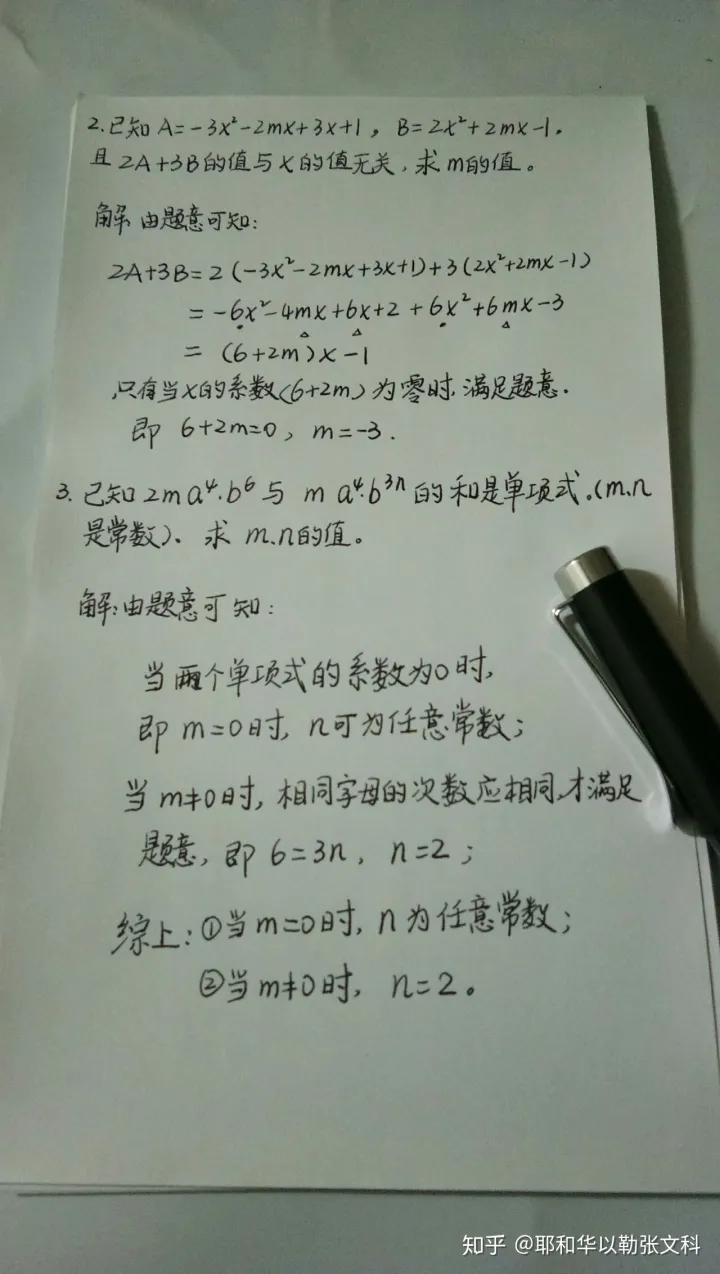 2.已知 A=-3x²-2mx+3x+1，B=2x²+2mx-1.
且 2A+3B的值与x的值无关，求m的值。
解：由题意可知：
2A+3B=2(-3x²-2mx+3x+1)+3(2x²+2mx-1)
=-6x²-4mx+6x+2+6x²+6mx-3
=(6+2m)x-1
只有当x的系数(6+2m)为零时，满足题意.
即 6+2m=0，m=-3.
3. 已知 2ma⁴·b⁶与 ma⁴·b³ⁿ的和是单项式。(m、n
是常数)、求 m、n的值。
解：由题意可知：
当两个单项式的系数为0时，
即 m=0时，n可为任意常数；
当 m≠0时，相同字母的次数应相同，才满足
题意，即 6=3n，n=2；
综上：①当m=0时，n为任意常数；
②当m≠0时，n=2。
知乎 @耶和华以勒张文科